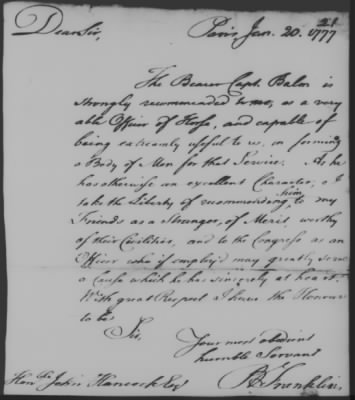 21
Dear Sir, Paris Jan. 20. 1777
The Bearer Capt. Balm is
strongly recommended to me, as a very
able Officer of Horse, and capable of
being extreamly useful to us, in forming
a Body of Men for that Service. As he
has otherwise an excellent Character, I
take the Liberty of recommending him to my
Friends as a Stranger, of Merit, worthy
of their Civilities, and to the Congress as an
Officer who if employ'd may greatly serve
a Cause which he has sincerely at heart.
With great Respect I have the Honour
to be
Sir,
Your most obedient
humble Servant
B Franklin
Hon.ble John Hancock Esqr